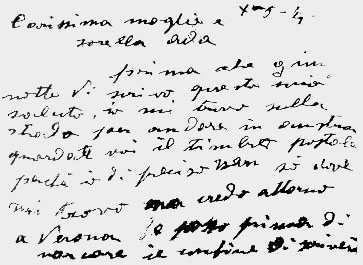 Carissima moglie e
sorella ada
prima che giun
notte vi scrivo questo mio
saluto, io mi trovo sulla
strada per andare in austria
guardate voi il timbro postale
perchè io di preciso non so dove
mi trovo ma credo attorno
a Verona se posso prima di
varcare il confine di scrivervi